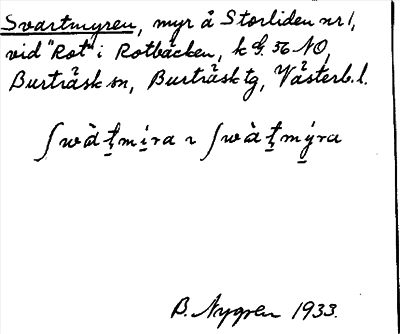 Svartmyren, myr å Storliden nr 1,
vid "Rot" i Rotbäcken, k bl. 56 NO,
Burträsk sn, Burträsk tg, Västerb. l.
B. Nygren 1933.